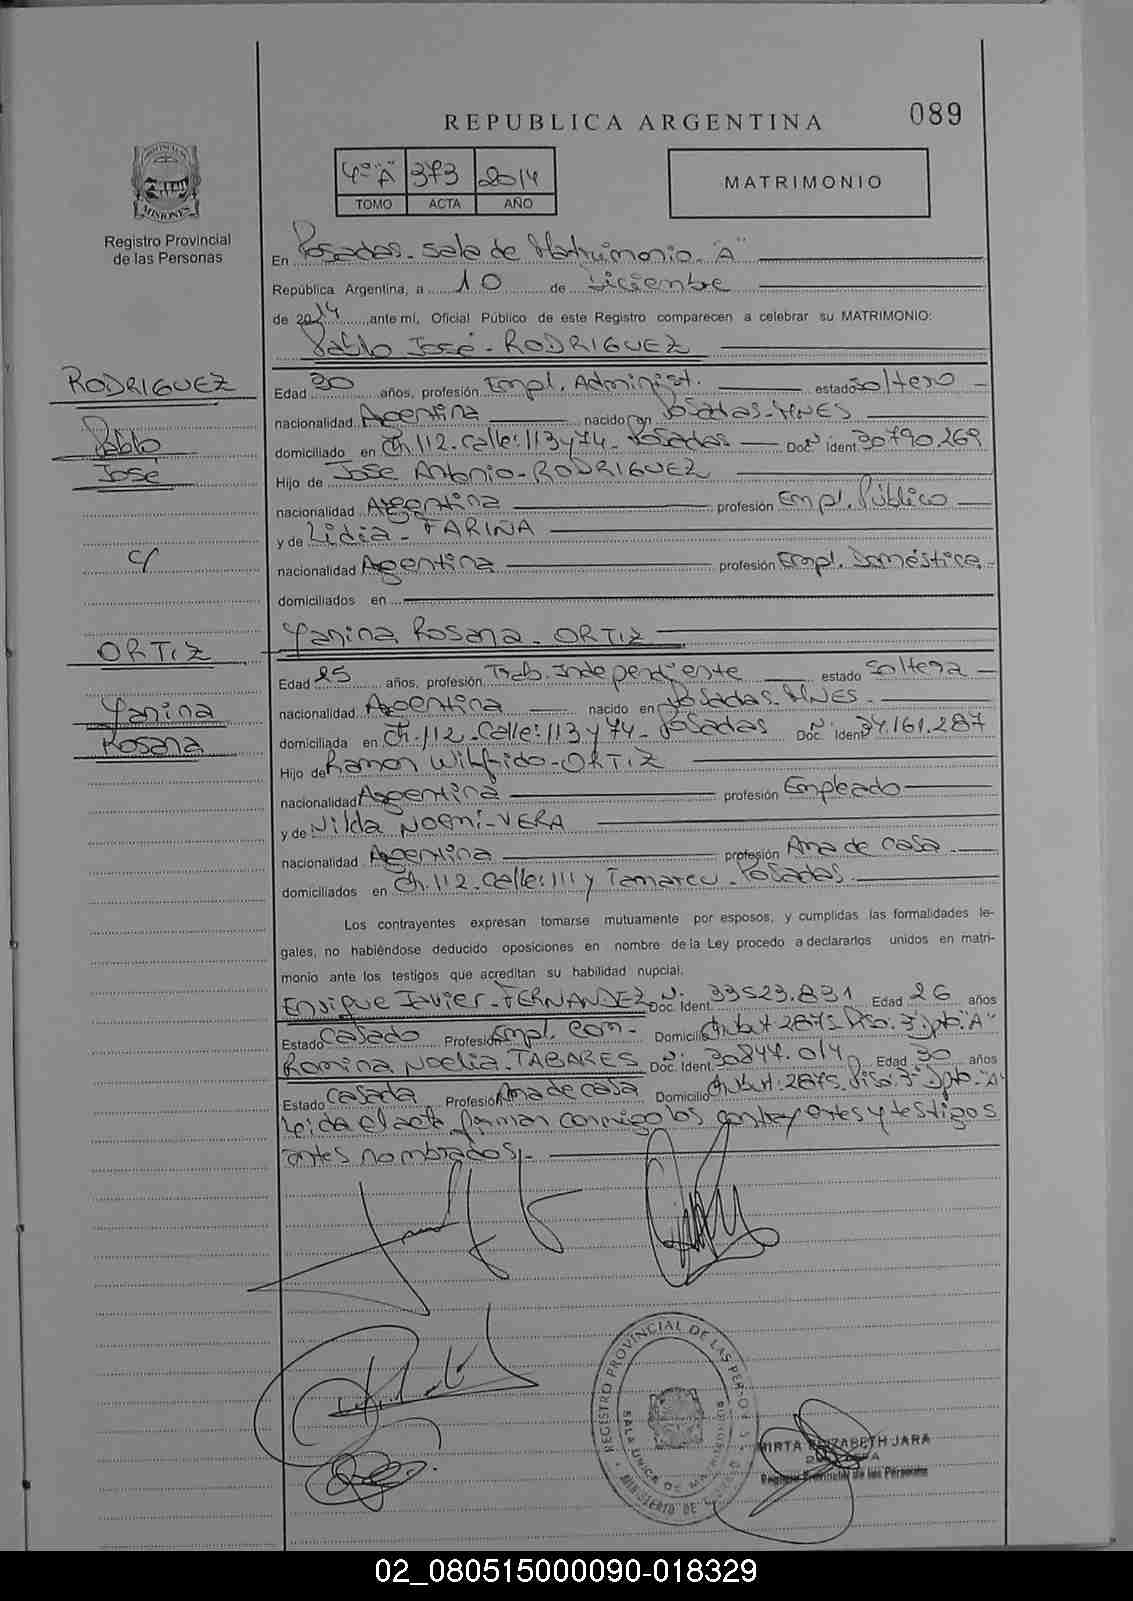 REPUBLICA ARGENTINA
089
4º "A" 373 2014
TOMO ACTA AÑO
MATRIMONIO
MISIONES
Registro Provincial
de las Personas
En Posadas. Sala de Matrimonio. "A"
República Argentina, a 10 de Diciembre
de 2014, ante mí, Oficial Público de este Registro comparecen a celebrar su MATRIMONIO:
Pablo José - RODRIGUEZ
RODRIGUEZ
Pablo
José
c/
ORTIZ
Yanina
Rosana
Edad 30 años, profesión Empl. Administ. estado Soltero
nacionalidad Argentina nacido en Posadas - MNES
domiciliado en Ch. 112 - Calle: 113 y 74 - Posadas Doc. Ident. Nº 30.790.269
Hijo de José Antonio - RODRIGUEZ
nacionalidad Argentina profesión Empl. Público
y de Lidia - FARIÑA
nacionalidad Argentina profesión Empl. Doméstica
domiciliados en
Yanina Rosana - ORTIZ
Edad 25 años, profesión Trab. Independiente estado Soltera
nacionalidad Argentina nacido en Posadas - MNES
domiciliada en Ch. 112 - Calle: 113 y 74 - Posadas Doc. Ident. Nº 34.161.287
Hijo de Ramon Wilfrido - ORTIZ
nacionalidad Argentina profesión Empleado
y de Nilda Noemi - VERA
nacionalidad Argentina profesión Ama de casa.
domiciliados en Ch. 112 - Calle: 111 y Tamareu - Posadas.
Los contrayentes expresan tomarse mutuamente por esposos, y cumplidas las formalidades le-
gales, no habiéndose deducido oposiciones en nombre de la Ley procedo a declararlos unidos en matri-
monio ante los testigos que acreditan su habilidad nupcial.
Enrique Javier - FERNANDEZ Doc. Ident. Nº 33523.831 Edad 26 años
Estado Casado Profesión Empl. Com - Domicilio Chubut 2875 Piso: 3º Dpto. "A"
Romina Noelia - TABARES Doc. Ident. Nº 30844.014 Edad 30 años
Estado Casada Profesión Ama de casa Domicilio Chubut: 2875. Piso: 3º Dpto. "A"
Leida el acta, firman conmigo los contrayentes y testigos
antes nombrados.-
REGISTRO PROVINCIAL DE LAS PERSONAS
SALA UNICA DE
MINISTERIO DE
MIRTA ELIZABETH JARA
Registro Provincial de las Personas
02_080515000090-018329